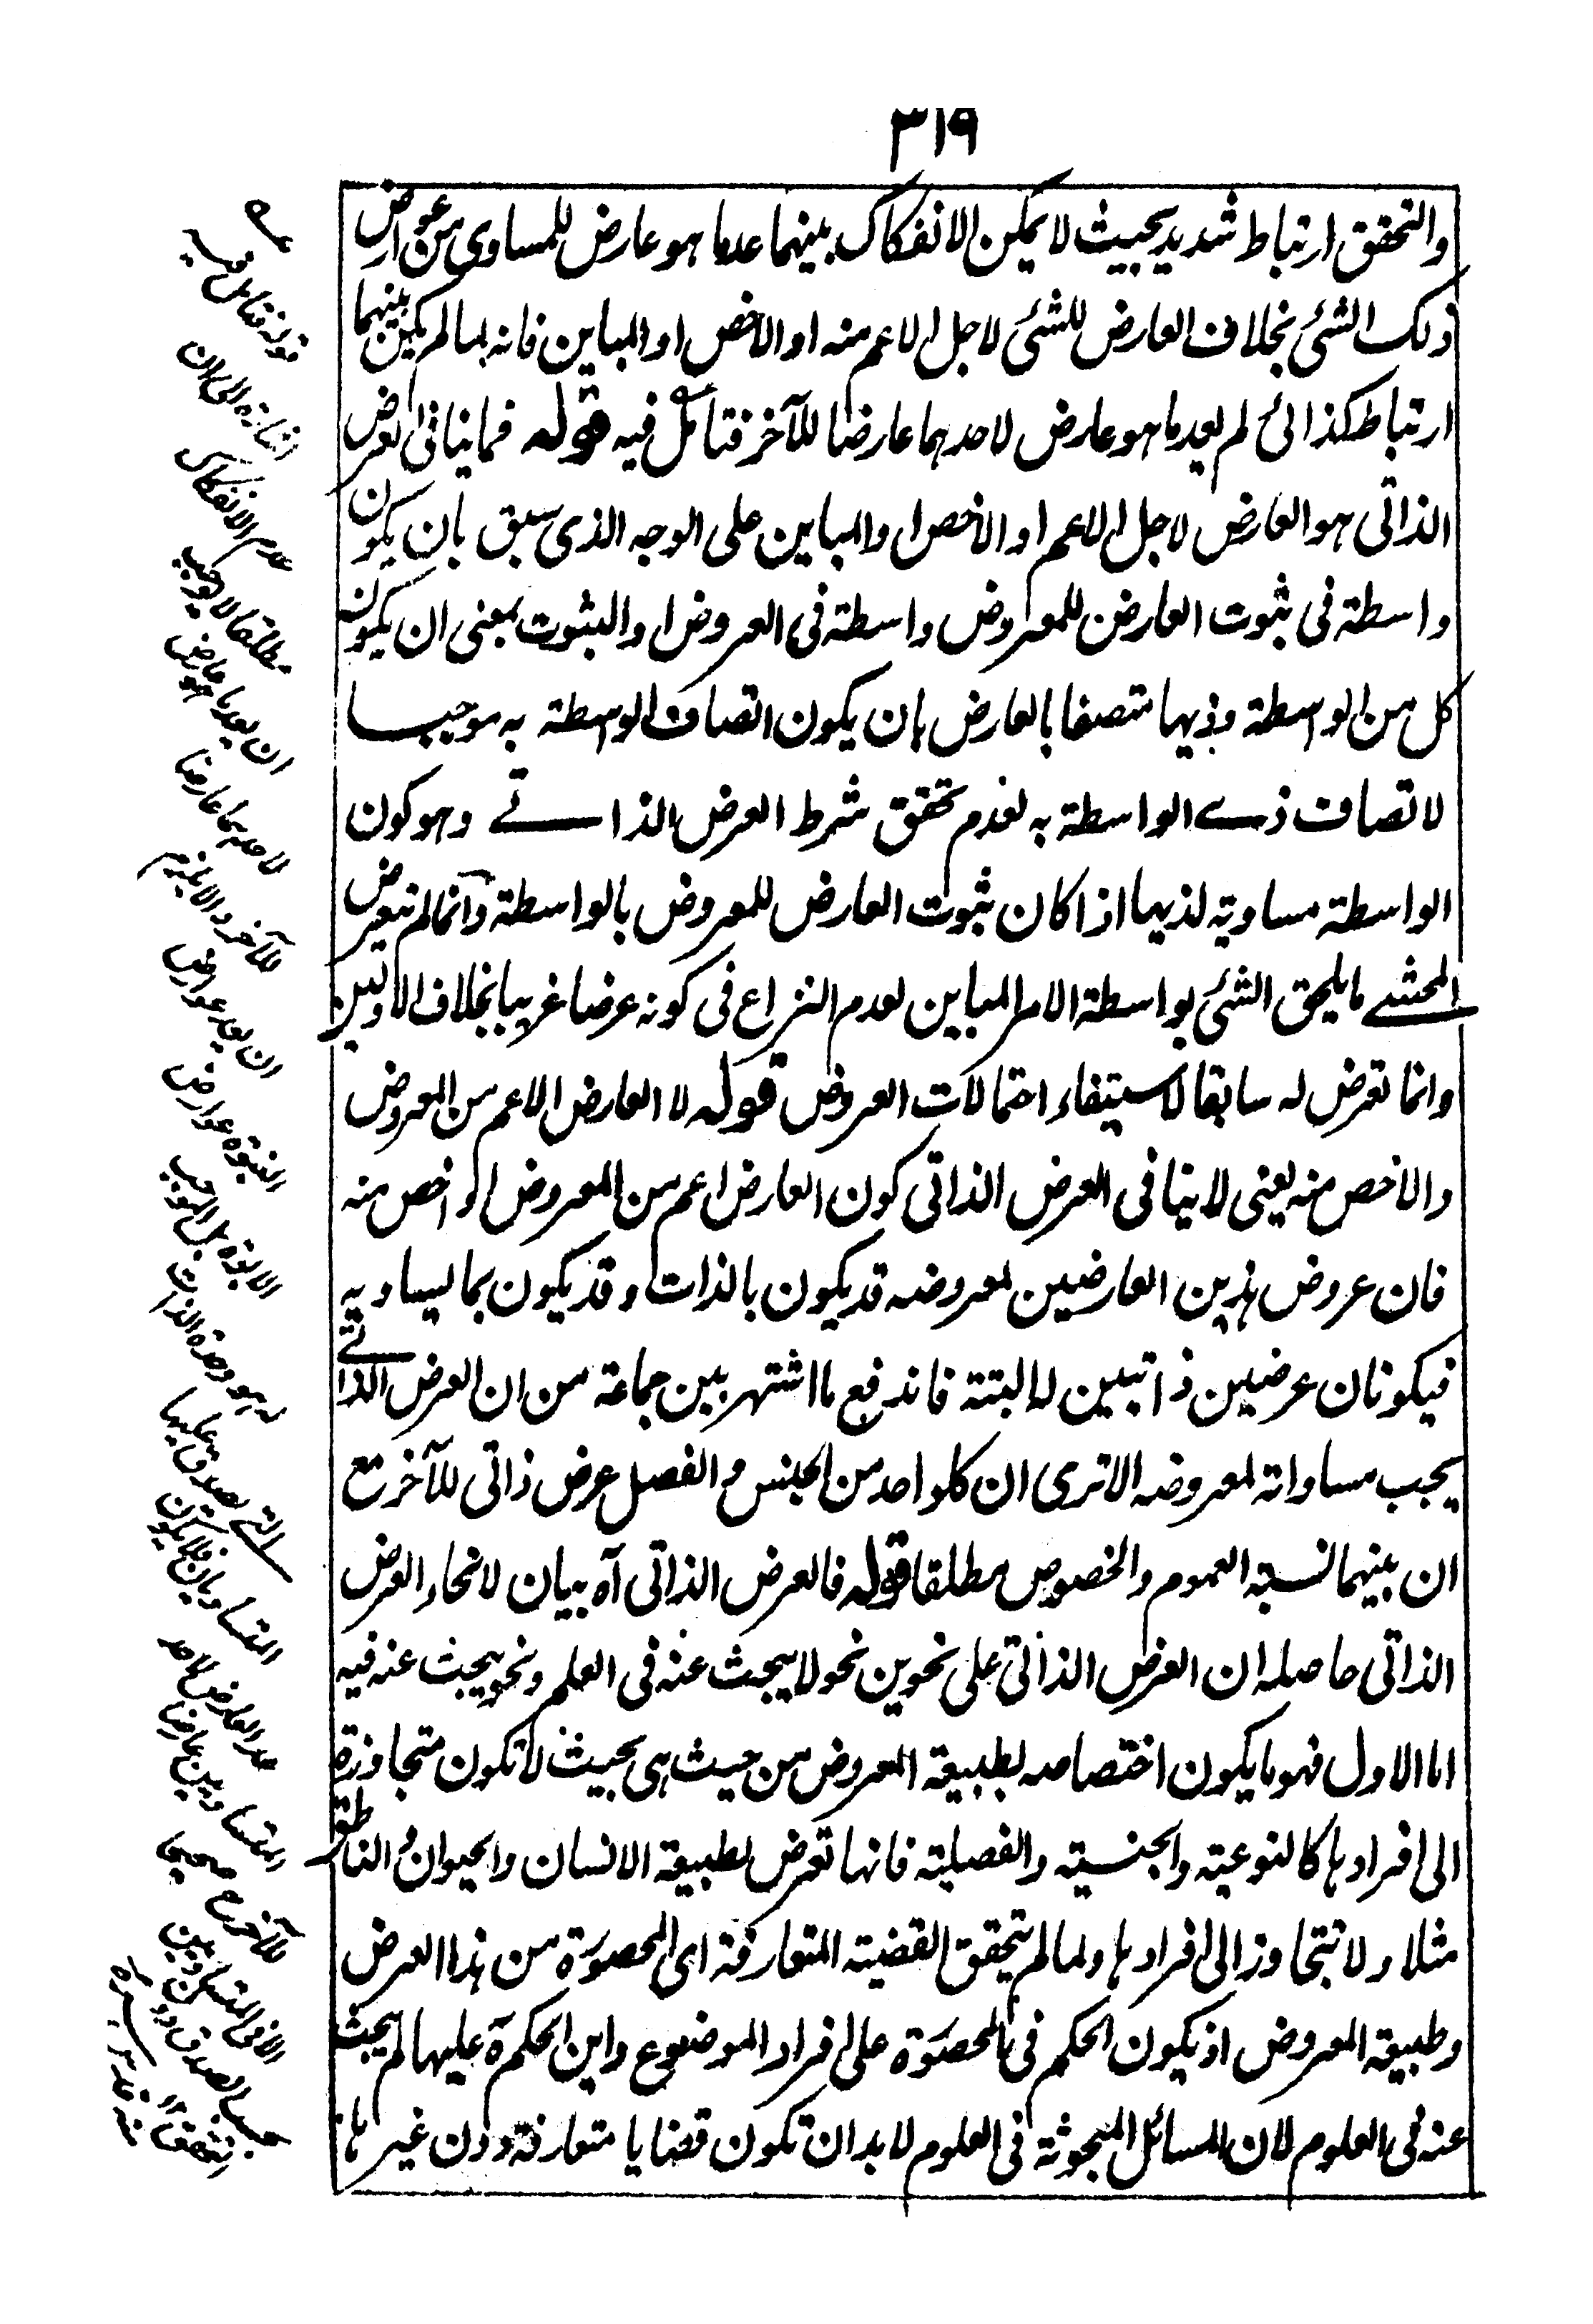 ٣١٩
والتحقق ارتباط شديد بحيث لا يمكن الانفكاك بينهما عدما هو عارض للمساوي من عوارض
ذلك الشئ بخلاف العارض للشئ لاجل الاعم منه او الاخص او المباين فانه لما لم يكن بينهما
ارتباط كذائي لم يعد ما هو عارض لاحدهما عارضا للآخر فتامل فيه قوله فما ينافي العرض
الذاتي هو العارض لاجل الاعم او الاخص او المباين على الوجه الذي سبق بان يكون
واسطة في ثبوت العارض للمعروض واسطة في العروض او الثبوت بمعنى ان يكون
كل من الواسطة وذيها متصفا بالعارض بان يكون اتصاف الواسطة به موجبا
لاتصاف ذي الواسطة به لعدم تحقق شرط العرض الذاتي وهو كون
الواسطة مساوية لذيها اذا كان ثبوت العارض للمعروض بالواسطة وانما لم يتعرض
المحشي ما يلحق الشئ بواسطة الامر المباين لعدم النزاع في كونه عرضا غريبا بخلاف الاولين
وانما تعرض له سابقا لاستيفاء احتمالات العروض قوله لا العارض الاعم من المعروض
والاخص منه يعني لا ينافي العرض الذاتي كون العارض اعم من المعروض او اخص منه
فان عروض هذين العارضين لمعروضه قد يكون بالذات وقد يكون بما يساويه
فيكونان عرضين ذاتيين له البتة فاندفع ما اشتهر بين جماعة من ان العرض الذاتي
يجب مساواته لمعروضه الا ترى ان كلواحد من الجنس والفصل عرض ذاتي للآخر مع
ان بينهما نسبة العموم والخصوص مطلقا قوله فالعرض الذاتي آه بيان لانحاء العرض
الذاتي حاصله ان العرض الذاتي على نحوين نحو لا يبحث عنه في العلم ونحو يبحث عنه فيه
اما الاول فهو ما يكون اختصاصه بطبيعة المعروض من حيث هي بحيث لا تكون متجاوزة
الى افرادها كالنوعية والجنسية والفصلية فانها تعرض لطبيعة الانسان والحيوان والناطق
مثلا ولا تتجاوز الى افرادها ولما لم يتحقق القضية المتعارفة اى المحصورة من هذا العرض
وطبيعة المعروض اذ يكون الحكم في المحصورة على افراد الموضوع واين الحكم ة عليها لم يبحث
عنه في العلوم لان المسائل المبحوثة في العلوم لا بد ان تكون قضايا متعارفة دون غيرها
قوله فتامل فيه
اشارة الى ان
عدم الانفكاك
مطلقا لا يوجب
ان يعد ما هو عارض
لاحدهما عارضا
للآخر والا يلزم
ان يعد عوارض
البنوة عوارض
الابوة بل الموجب
له هو وحدة الذات
التي يصدق عليها
المتساويان فلا يكون
عد العارض لاحد
المتساويين عارضا
للآخر صحيحا
الا في المتساويين
بحسب الصدق